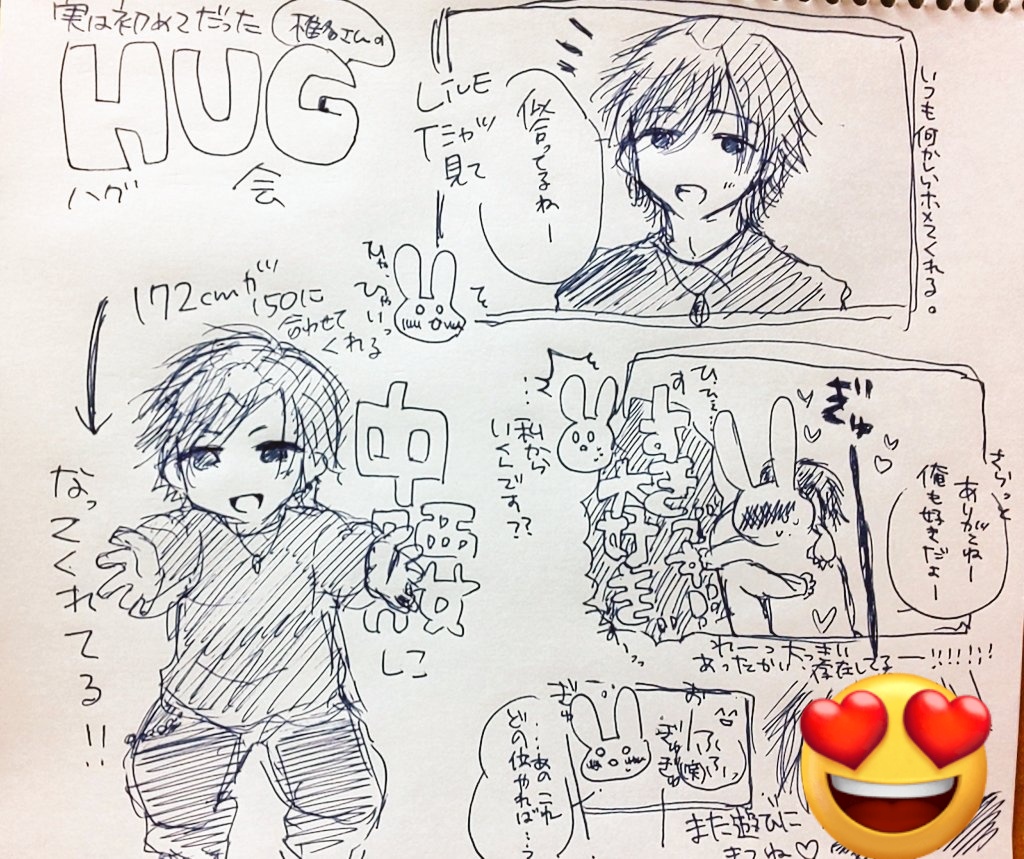 実は初めてだった
椎名さんの
HUG
ハグ 会
いつも何かしらホメてくれる。
LIVE
だゃツ
見て
似合ってるねー
ひゃ
ひゃいっ
172cmが
150に
合わせて
くれる
なってくれてる!!
中腰
しこ
ぎゅ
さらっと
ありがとねー
俺も好きだよー
…私から
いくんですっ??
すひでぇ…
大好き
れーっ大っきい
あったかい存在してるー!!!!!!
ぎゅ
……あのこれ
どの位やれば…っ
お
ぎゅぎゅ
^^
ふふっ
(笑)
また遊びに
きてね♡